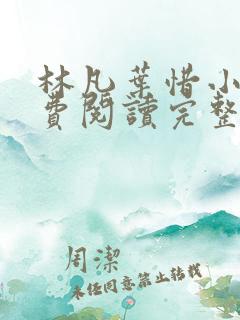 林凡葉惜小
費閱讀完整
周潔
未经同意禁止转载